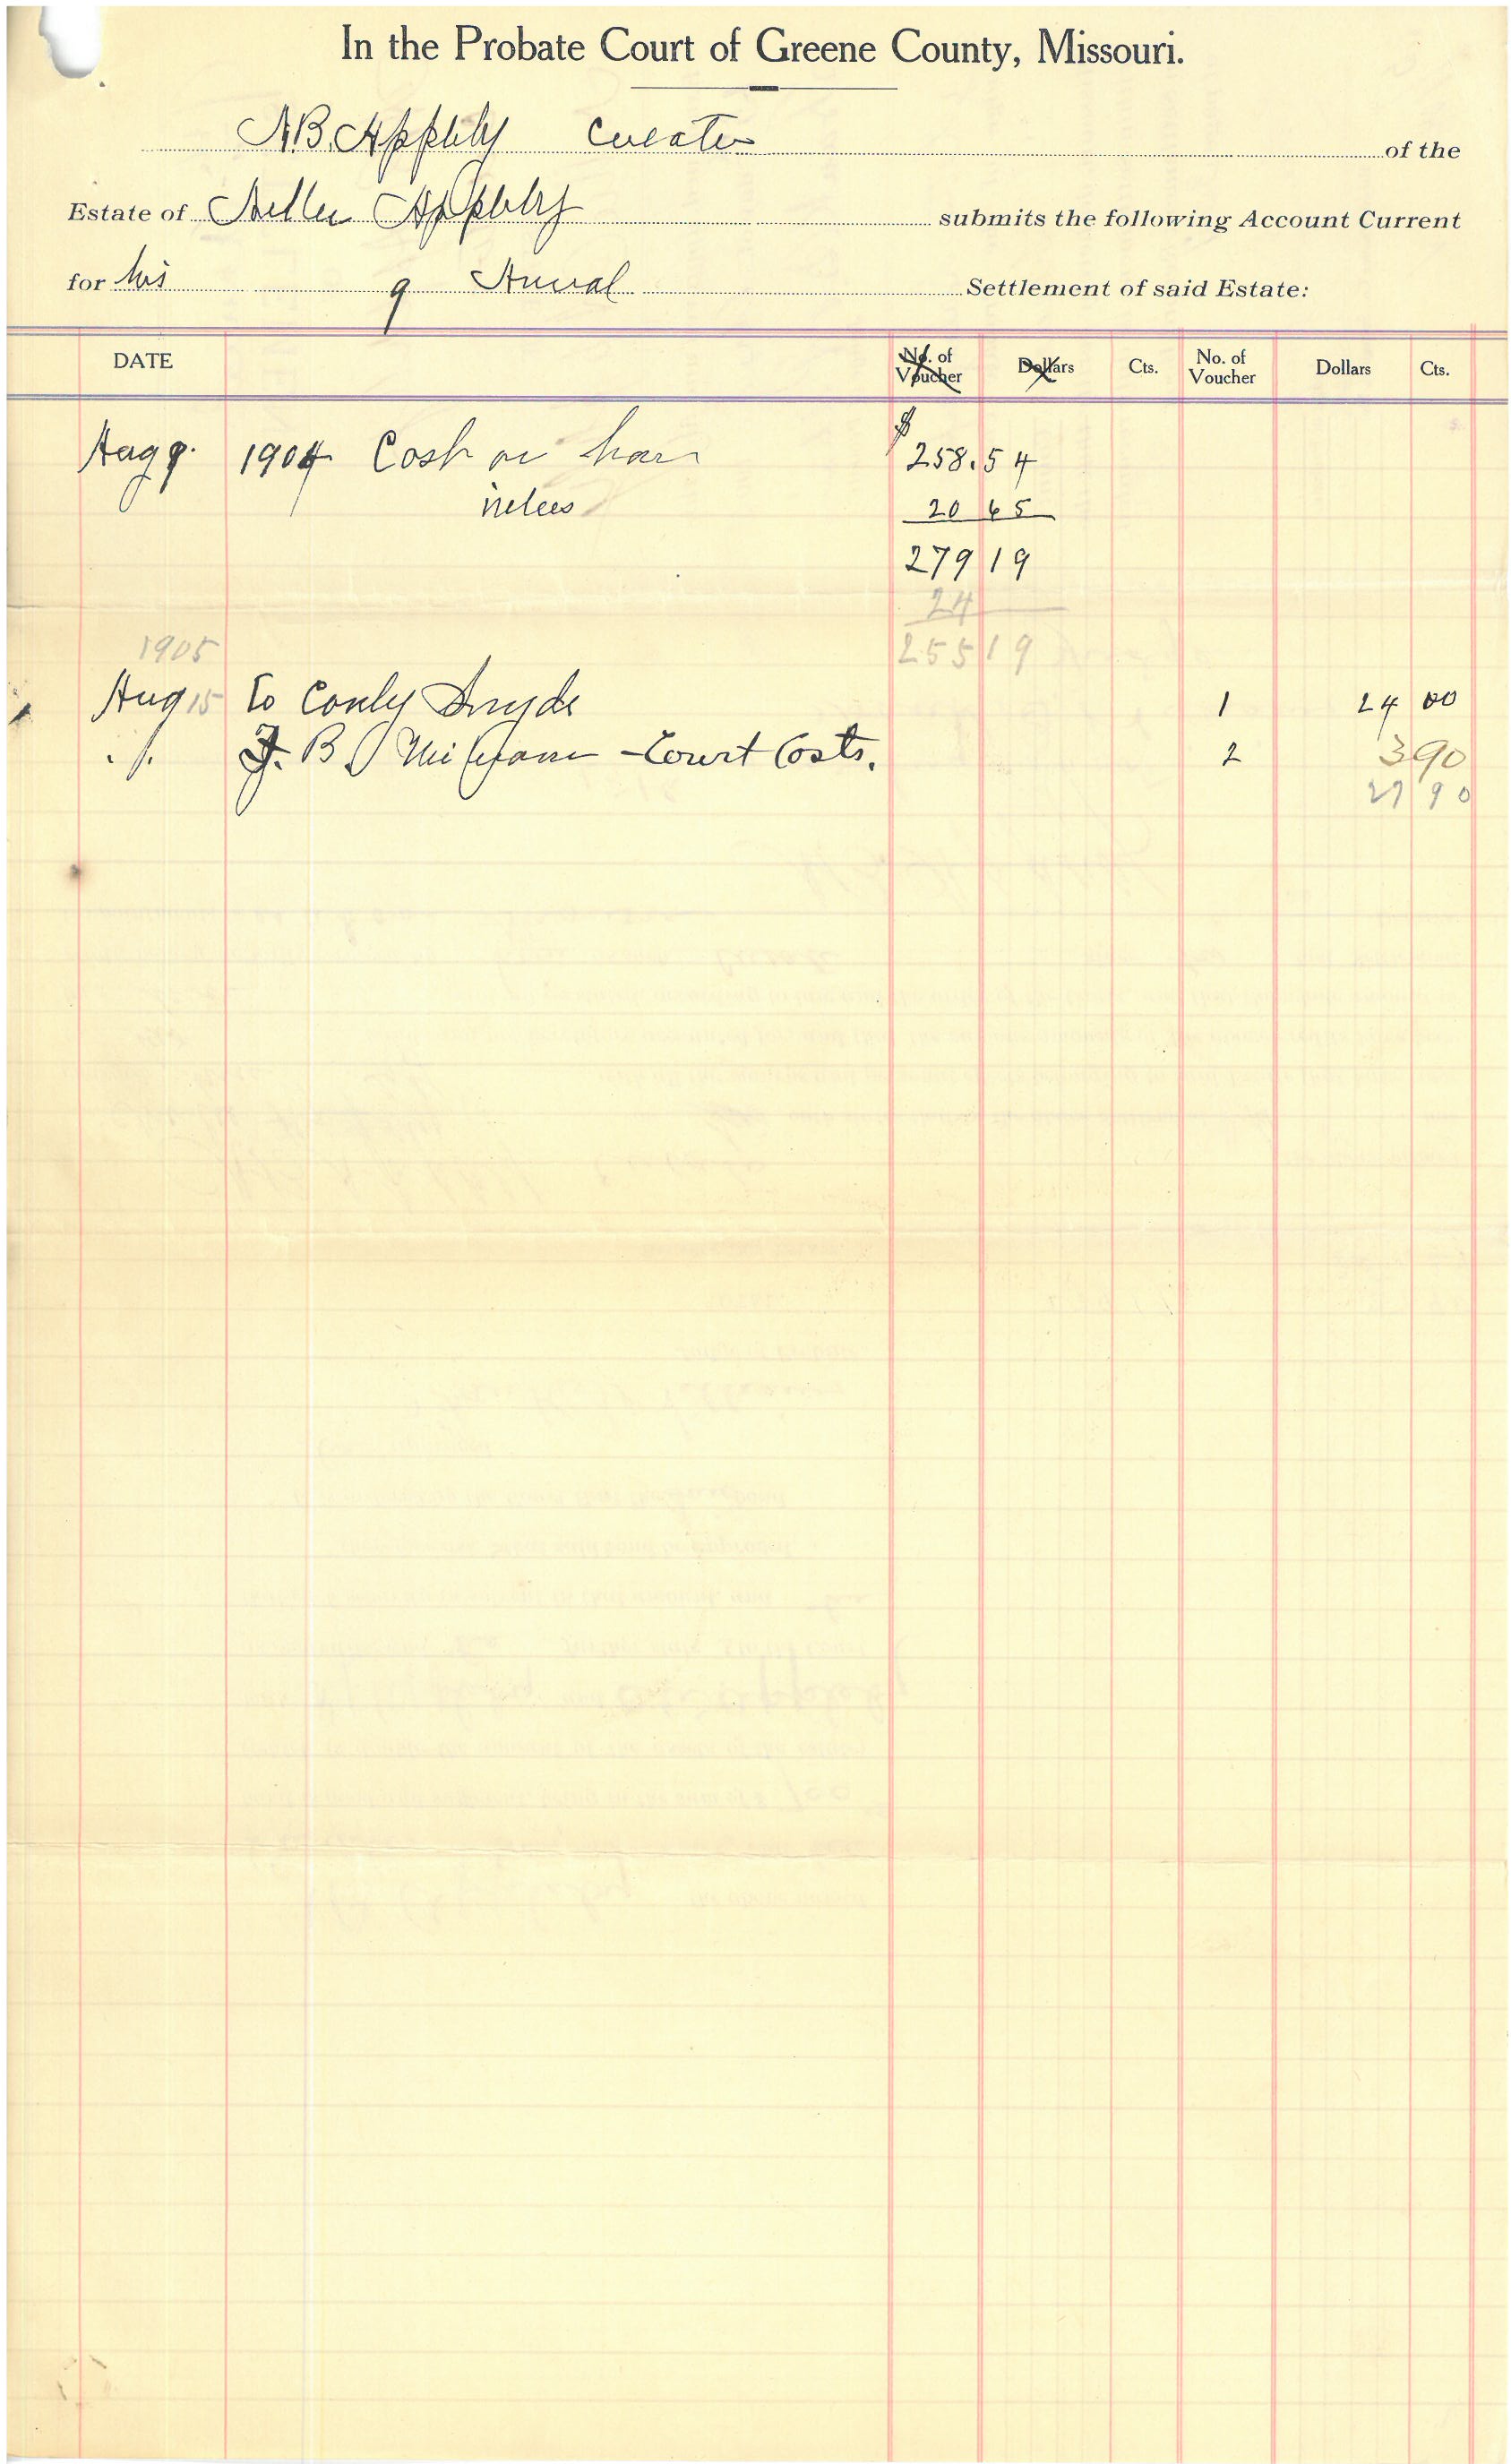 In the Probate Court of Greene County, Missouri.
of the
Estate of submits the following Account Current
for his 9 Settlement of said Estate:
DATE No. of Voucher Dollars Cts. No. of Voucher Dollars Cts.
Aug 9. 1904 Cash $ 258.54
20 65
279 19
24
1905 255 19
Aug 15 To Conly 1 24 00
J. B. - Court Costs. 2 3 90
27 90